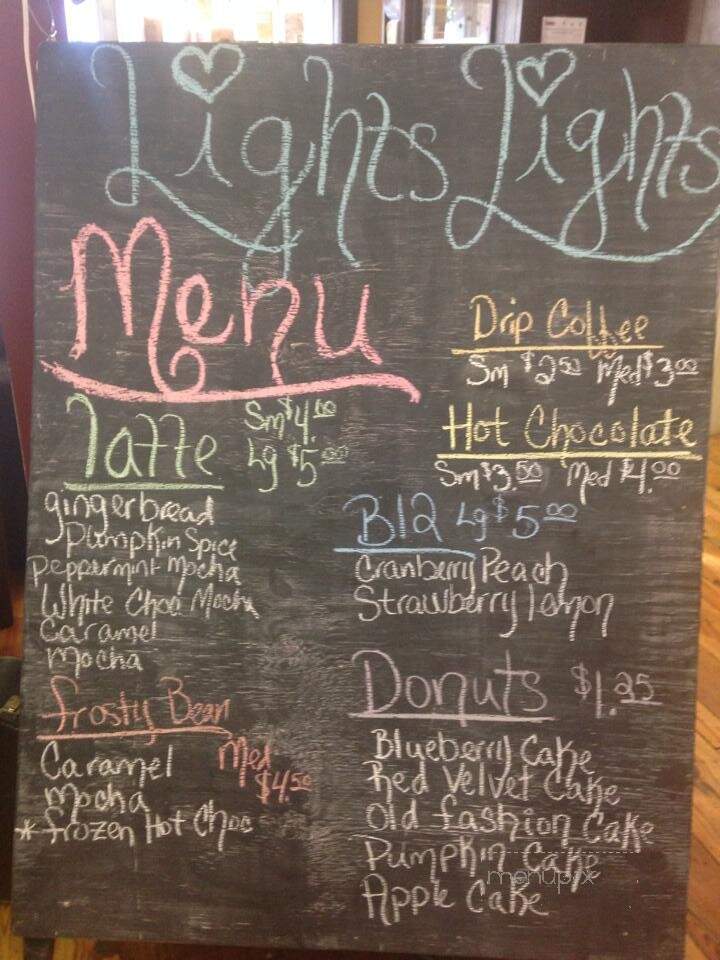 Lights Lights
Menu
Latte Sm $4.00
Lg $5.00
gingerbread
Pumpkin Spice
Peppermint Mocha
White Choc Mocha
Caramel
Mocha
Frosty Bean
Med $4.50
Caramel
Mocha
*Frozen Hot Choc
Drip Coffee
Sm $2.50 Med $3.00
Hot Chocolate
Sm $3.00 Med $4.00
B12 Lg $5.00
Cranberry Peach
Strawberry Lemon
Donuts $1.25
Blueberry Cake
Red Velvet Cake
Old fashion Cake
Pumpkin Cake
Apple Cake
menupix